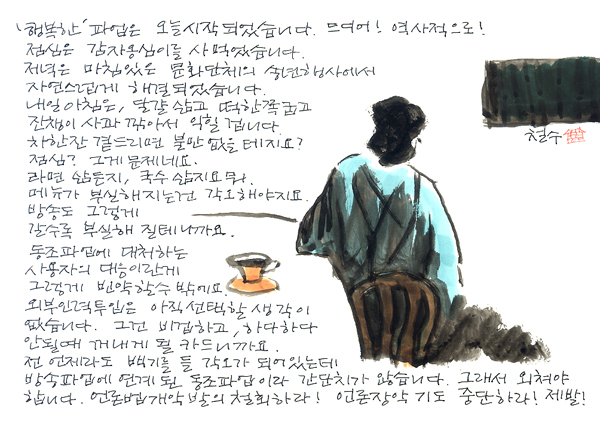 '행복한' 파업은 오늘시작되었습니다. 드디어! 역사적으로!
점심은 감자옹심이를 사먹었습니다.
저녁은 마침있은 문화단체의 송년행사에서
자연스럽게 해결되었습니다.
내일아침은, 달걀 삶고 떡한쪽굽고
잔챙이 사과 깎아서 먹힐겁니다
차한잔 곁드리면 불만 없을 테지요?
점심? 그게문제네요.
라면 삶든지, 국수 삶지요 뭐.
메뉴가 부실해지는건 각오해야지요.
방송도 그렇게
갈수록 부실해 질테니까요.
동조파업에 대처하는
사용자의 대응이란게
그렇게 빈약할수밖에요.
외부인력투입은 아직선택할생각이
없습니다. 그건 비겁하고, 하다하다
안될때 꺼내게 될 카드니까요.
전 언제라도 백기를 들 각오가 되어있는데
방송파업에 연계된 동조파업이라 간단치가 않습니다. 그래서 외쳐야
합니다. 언론법개악발의철회하라! 언론장악 기도 중단하라! 제발!
철수